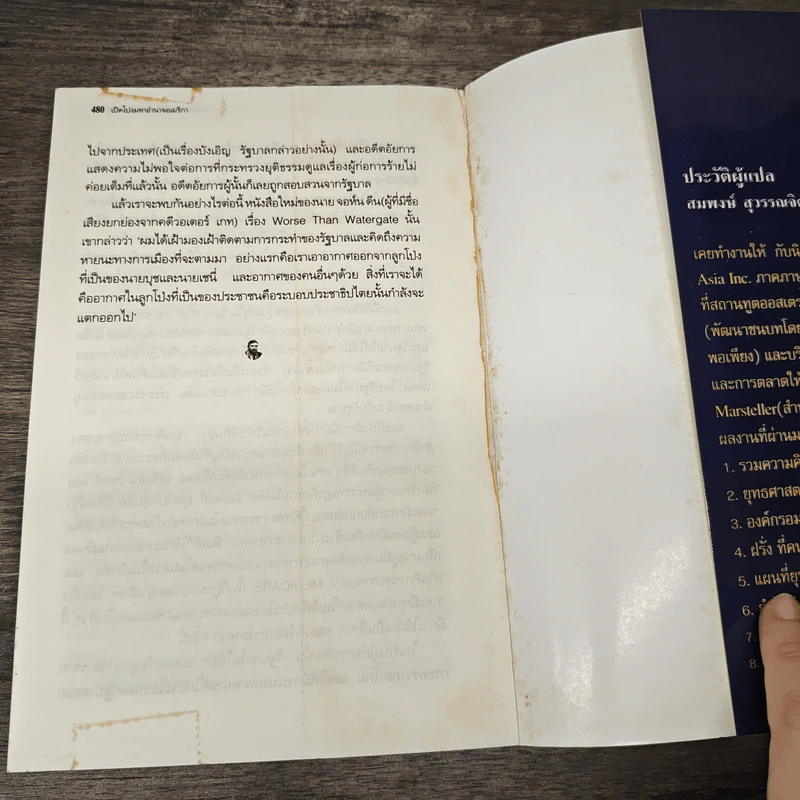 480 เปิดโปงมหาอำนาจอเมริกา
ไปจากประเทศ(เป็นเรื่องบังเอิญ รัฐบาลกล่าวอย่างนั้น) และอดีตอัยการ
แสดงความไม่พอใจต่อการที่กระทรวงยุติธรรมดูแลเรื่องผู้ก่อการร้ายไม่
ค่อยเต็มที่แล้วนั้น อดีตอัยการผู้นั้นก็เลยถูกสอบสวนจากรัฐบาล
แล้วเราจะพบกันอย่างไรต่อนี้ หนังสือใหม่ของนาย จอห์น ดีน(ผู้ที่มีชื่อ
เสียงยกย่องจากคดีวอเตอร์ เกท) เรื่อง Worse Than Watergate นั้น
เขากล่าวว่า 'ผมได้เฝ้ามองเฝ้าติดตามการกระทำของรัฐบาลและคิดถึงความ
หายนะทางการเมืองที่จะตามมา อย่างแรกคือเราเอาอากาศออกจากลูกโป่ง
ที่เป็นของนายบุชและนายเชนี่ และอากาศของคนอื่นๆด้วย สิ่งที่เราจะได้
คืออากาศในลูกโป่งที่เป็นของประชาชนคือระบอบประชาธิปไตยนั้นกำลังจะ
แตกออกไป'
ประวัติผู้แปล
สมพงษ์ สุวรรณจิต
เคยทำงานให้ กับนิ
Asia Inc. ภาคภาษ
ที่สถานทูตออสเตร
(พัฒนาชนบทโดย
พอเพียง) และบริ
และการตลาดให้
Marsteller(สำ
ผลงานที่ผ่านม
1. รวมความคิ
2. ยุทธศาสต
3. องค์กรอม
4. ฝรั่ง ที่คน
5. แผนที่ยุ
6.
7.
8.